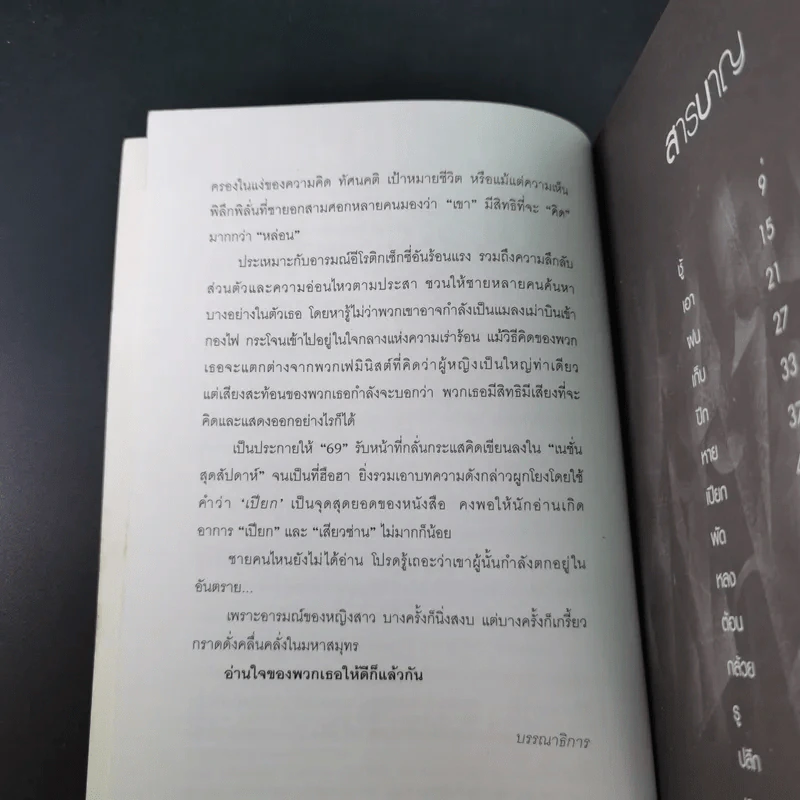 ครองในแง่ของความคิด ทัศนคติ เป้าหมายชีวิต หรือแม้แต่ความเห็น
พิลึกพิลั่นที่ชายอกสามศอกหลายคนมองว่า “เขา” มีสิทธิที่จะ “คิด”
มากกว่า “หล่อน”
ประเหมาะกับอารมณ์อีโรติกเซ็กซี่อันร้อนแรง รวมถึงความลึกลับ
ส่วนตัวและความอ่อนไหวตามประสา ชวนให้ชายหลายคนค้นหา
บางอย่างในตัวเธอ โดยหารู้ไม่ว่าพวกเขาอาจกำลังเป็นแมลงเม่าบินเข้า
กองไฟ กระโจนเข้าไปอยู่ในใจกลางแห่งความเร่าร้อน แม้วิธีคิดของพวก
เธอจะแตกต่างจากพวกเฟมินิสต์ที่คิดว่าผู้หญิงเป็นใหญ่ท่าเดียว
แต่เสียงสะท้อนของพวกเธอกำลังจะบอกว่า พวกเธอมีสิทธิมีเสียงที่จะ
คิดและแสดงออกอย่างไรก็ได้
เป็นประกายให้ “69” รับหน้าที่กลั่นกระแสคิดเขียนลงใน “เนชั่น
สุดสัปดาห์” จนเป็นที่ฮือฮา ยิ่งรวมเอาบทความดังกล่าวผูกโยงโดยใช้
คำว่า ‘เปียก’ เป็นจุดสุดยอดของหนังสือ คงพอให้นักอ่านเกิด
อาการ “เปียก” และ “เสียวซ่าน” ไม่มากก็น้อย
ชายคนไหนยังไม่ได้อ่าน โปรดรู้เถอะว่าเขาผู้นั้นกำลังตกอยู่ใน
อันตราย...
เพราะอารมณ์ของหญิงสาว บางครั้งก็นิ่งสงบ แต่บางครั้งก็เกรี้ยว
กราดดั่งคลื่นคลั่งในมหาสมุทร
อ่านใจของพวกเธอให้ดีก็แล้วกัน
บรรณาธิการ
สารบาญ
ชู้
เอา
ฝน
เก็บ
ปีก
หาย
เปียก
พัด
หลง
ต้อน
กล้วย
รู
ปลิก
9
15
21
27
33
37